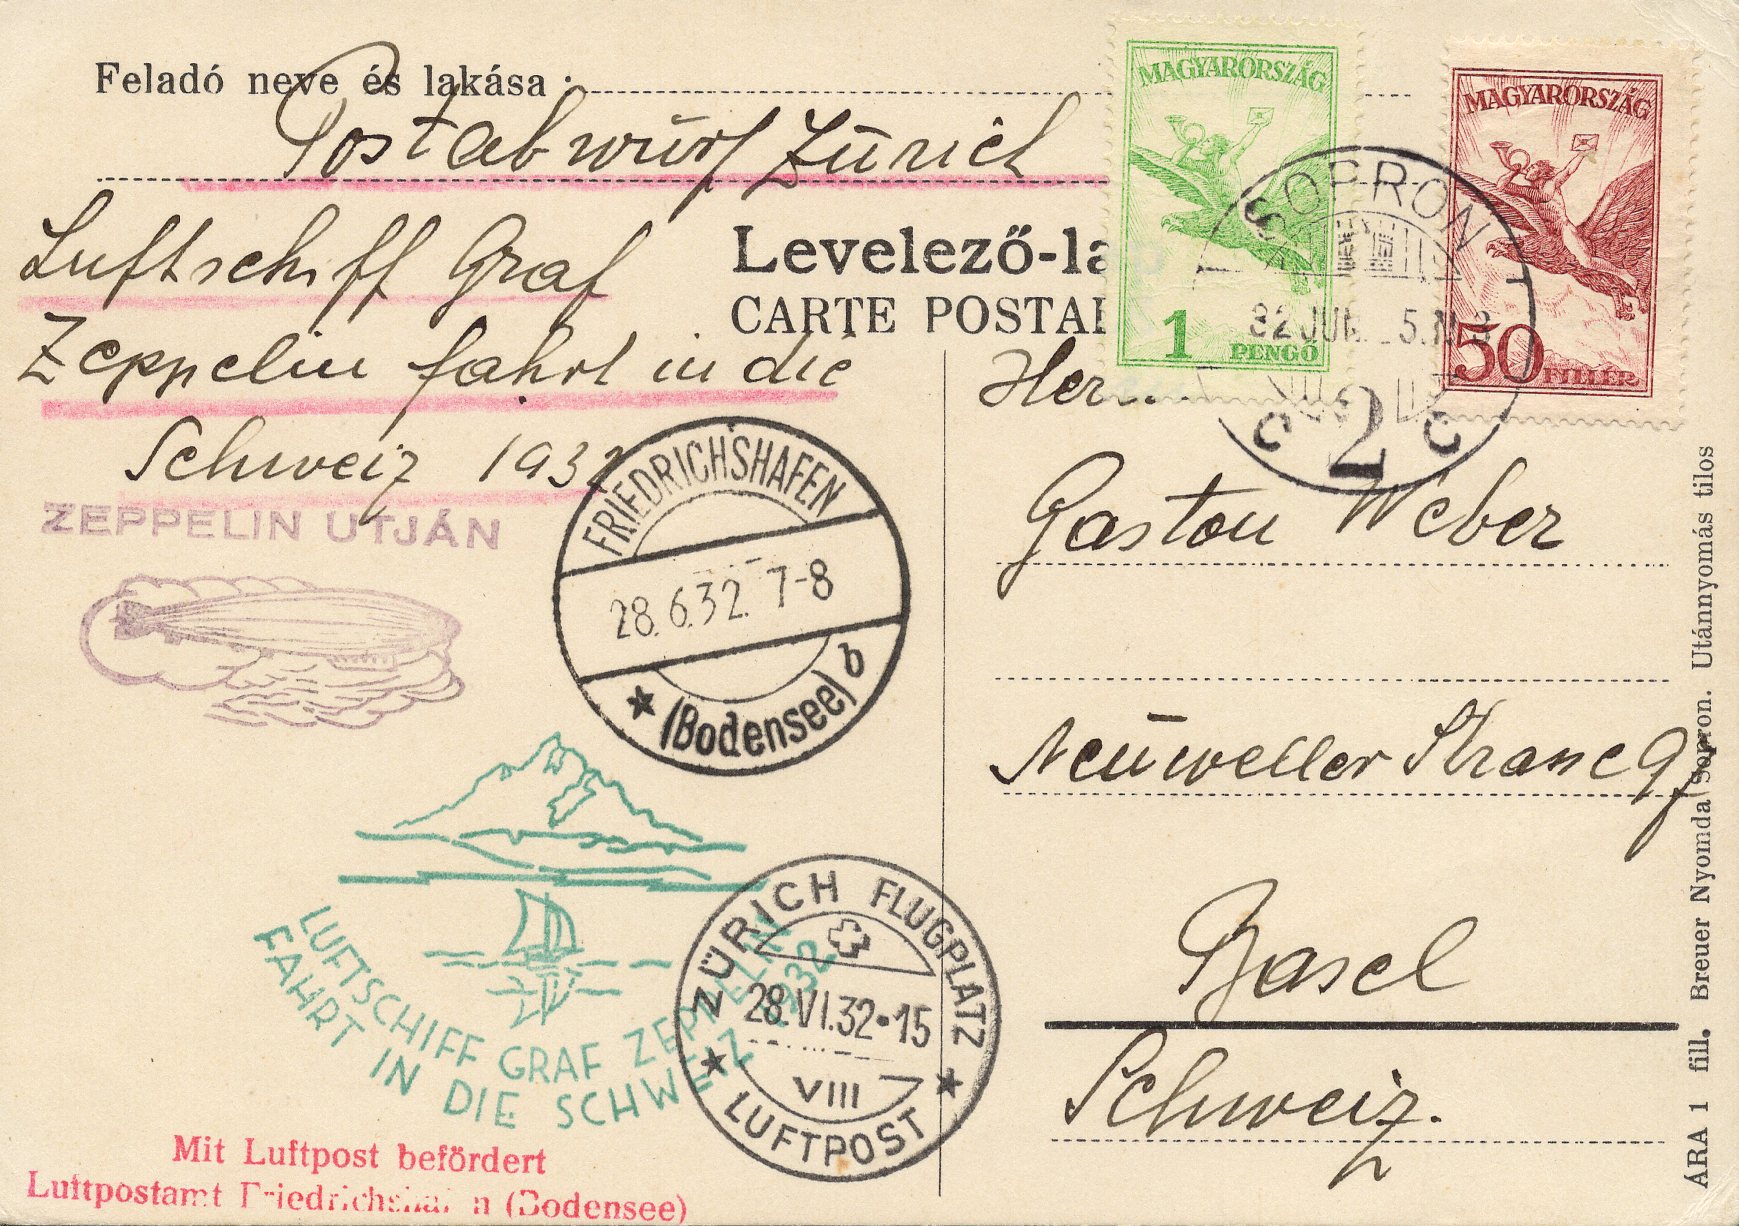 Feladó neve és lakása:
Postabwurf Zürich
Luftschiff Graf
Zeppelin fahrt in die
Schweiz 1932
ZEPPELIN UTJÁN
Levelező-la
CARTE POSTAL
MAGYARORSZÁG
1 PENGŐ
MAGYARORSZÁG
50 FILLÉR
SOPRON
32 JUN. 25. N 8
C 2 C
FRIEDRICHSHAFEN
28.6.32. 7-8
* (Bodensee) b
Herrn
Gaston Weber
Neuweiler Strasse 97
Basel
Schweiz.
LUFTSCHIFF GRAF ZEPPELIN
FAHRT IN DIE SCHWEIZ 1932
ZÜRICH FLUGPLATZ
28.VI.32•15
VIII
LUFTPOST
Mit Luftpost befördert
Luftpostamt Friedrichshafen (Bodensee)
ÁRA 1 fill. Breuer Nyomda Sopron. Utánnyomás tilos